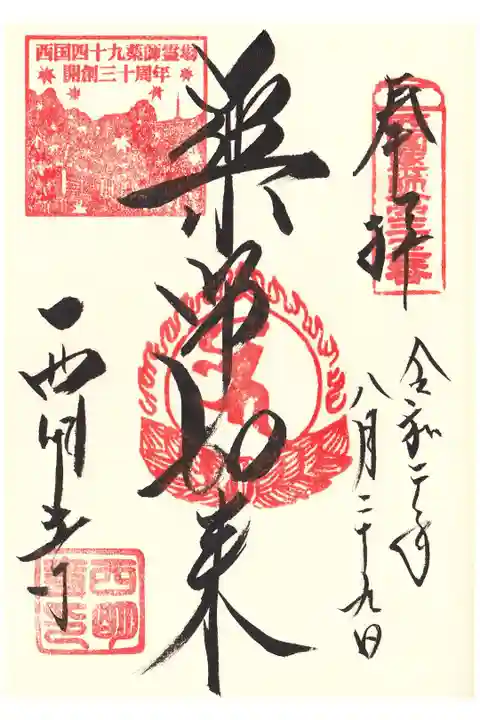 奉拝
令和二年
八月二十九日
薬師如来
西国四十九薬師霊場
開創三十周年
西明寺
西明
寺印